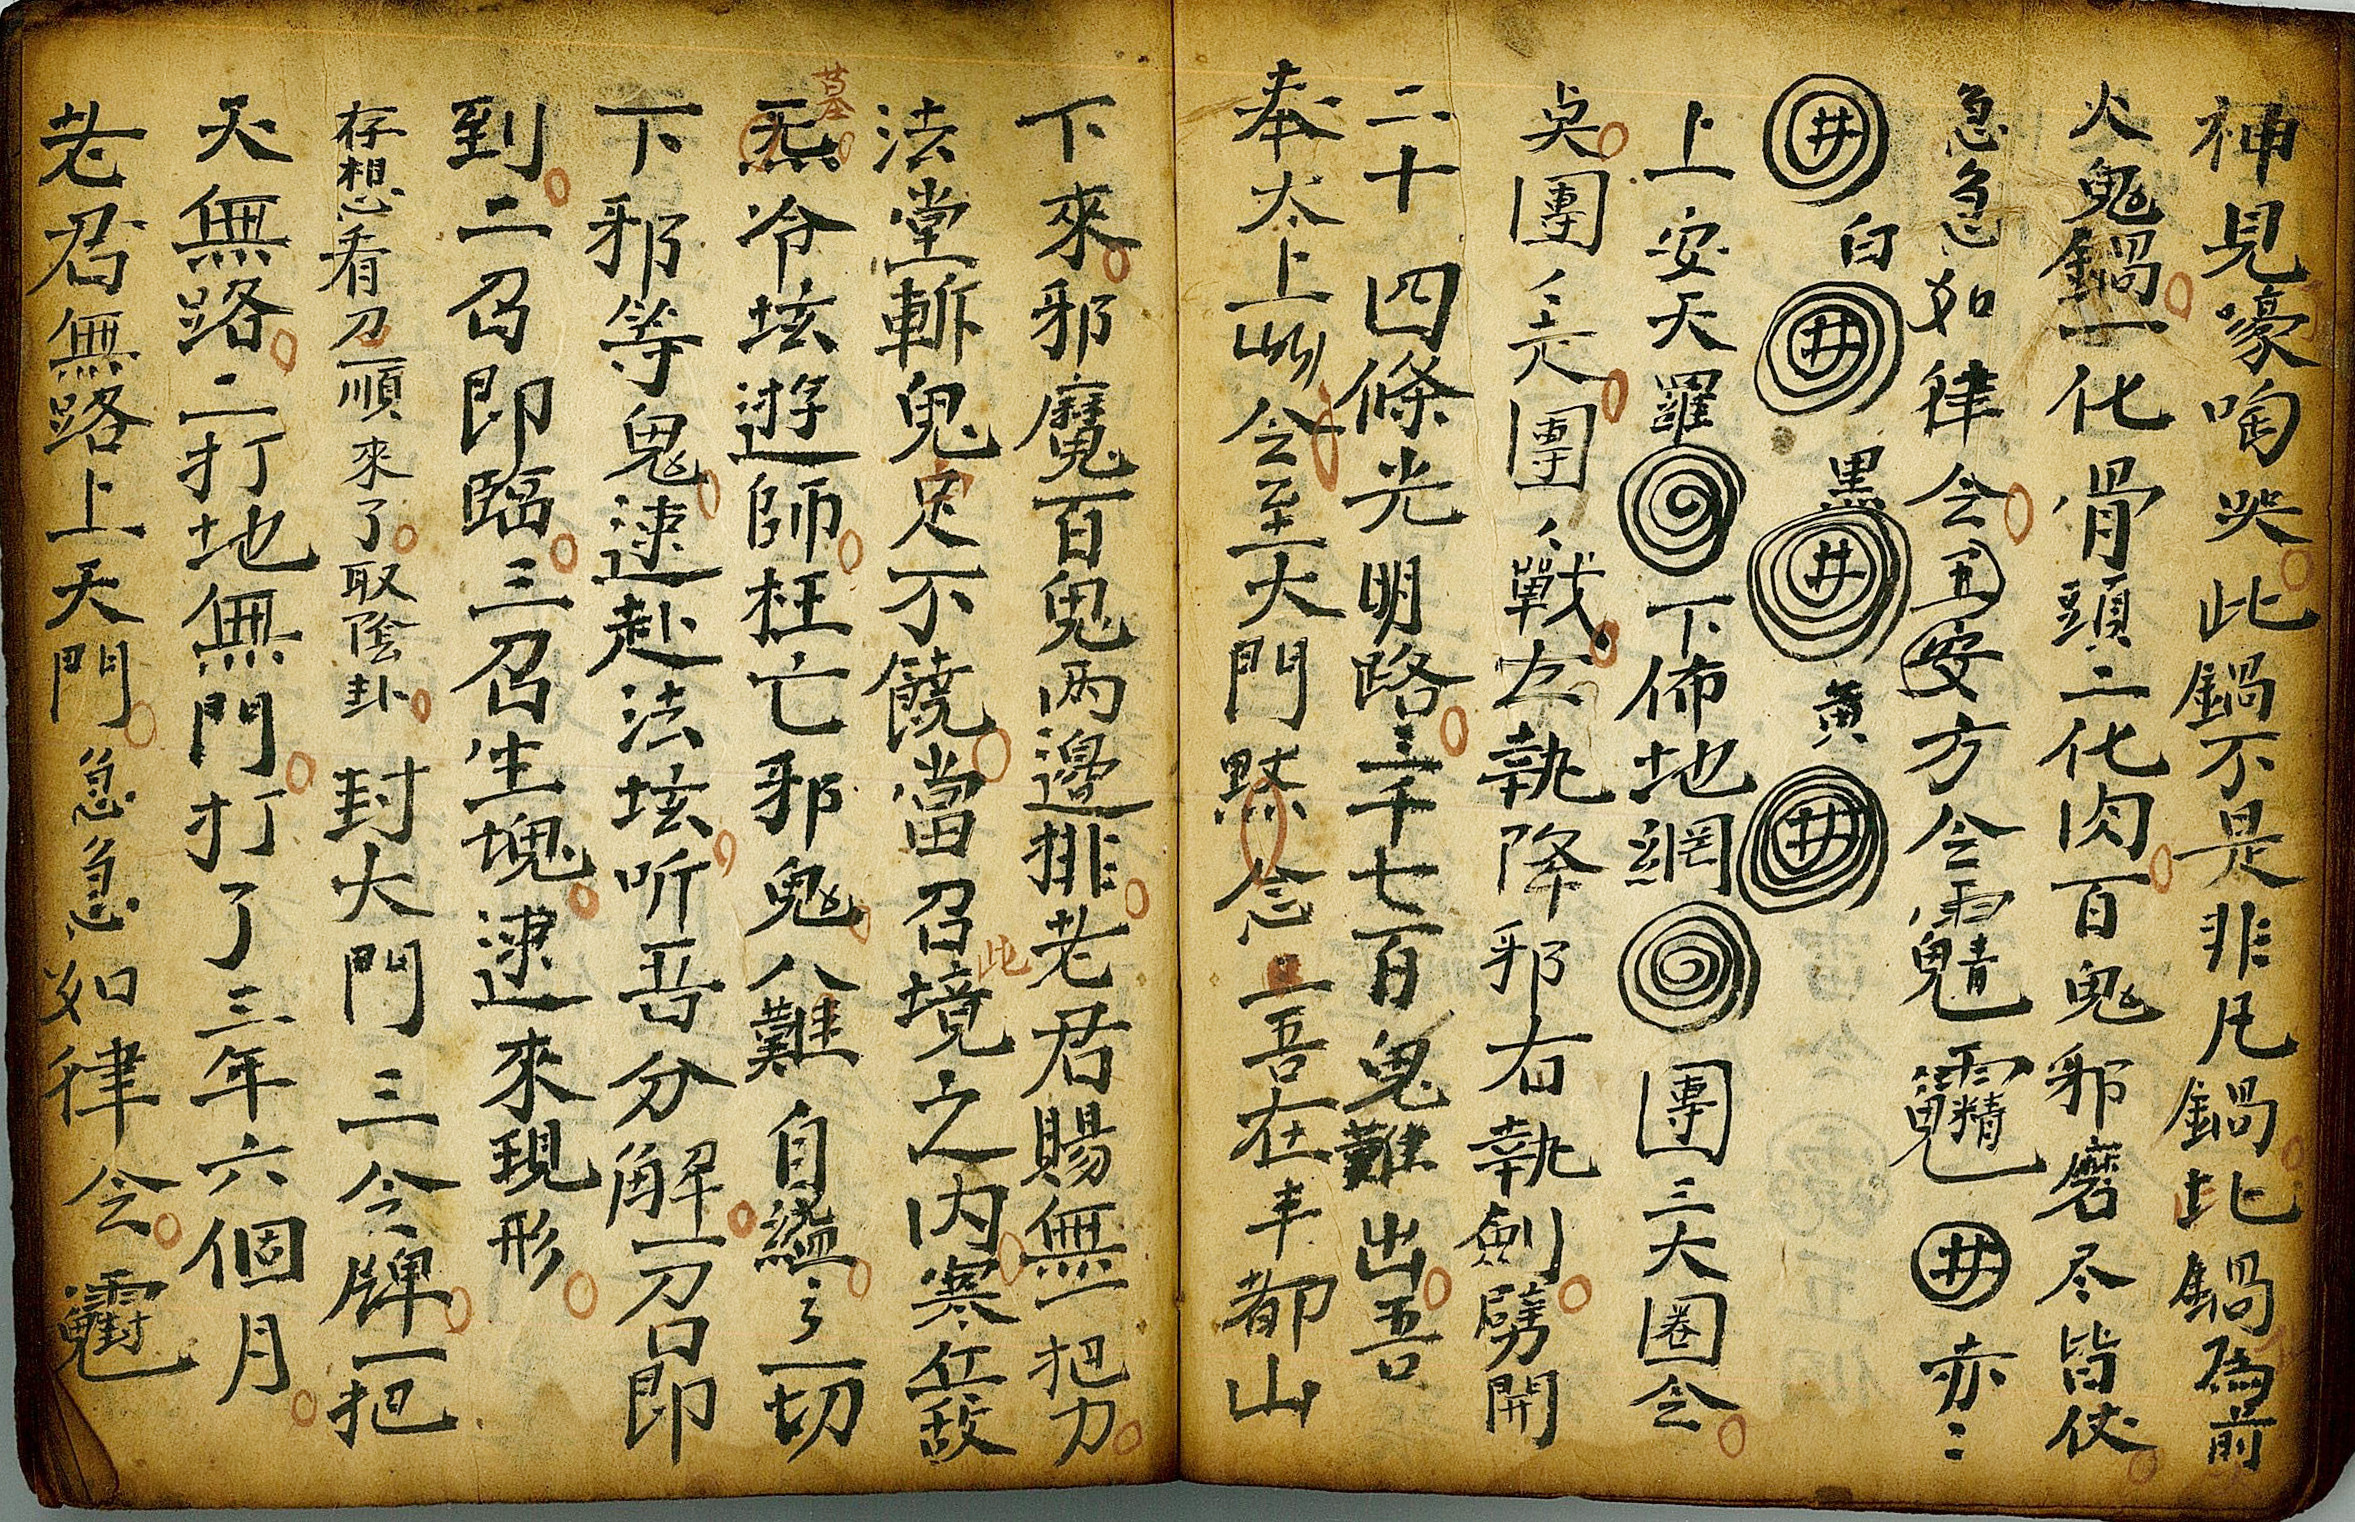 神見嚎啕哭此鍋不是非凡鍋此鍋為前
火鬼鍋一化骨頭二化肉百鬼邪磨尽皆伏
急急如律令五安方令 井赤
井白井黑井黄井
上安天羅下佈地網團三大圈令
團走團戰左執降邪右執劍劈開
二十四條光明路三千七百鬼難出吾
奉太上令至大門黙念一吾在丰都山
下來邪魔百鬼两邊排老君賜無一把刀
法堂斬鬼定不饒當召此境之内寒丘故
墓炁冷坛遊師枉亡邪鬼八難自縊一切
下邪等鬼逮赴法坛听吾分解一召即
到二召即臨三召生塊逮來現形
存想看召一順來了取陰卦封大門三令牌一把
天無路二打地無門打了三年六個月
老君無路上天門急急如律令